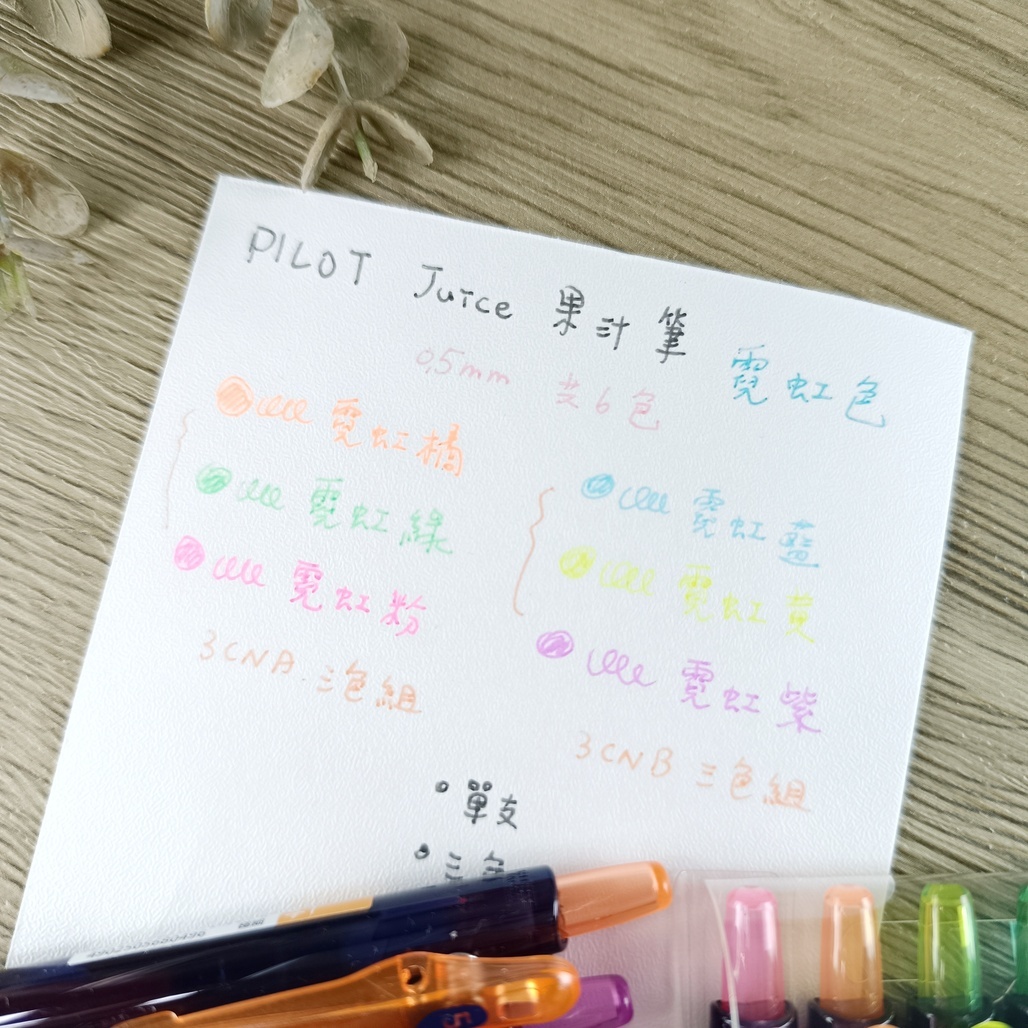 PILOT Juice 果汁筆
霓虹色
0.5mm 共6色
霓虹橘
霓虹綠
霓虹粉
3CNA.三色組
霓虹藍
霓虹黃
霓虹紫
3CNB 三色組
單支
三色